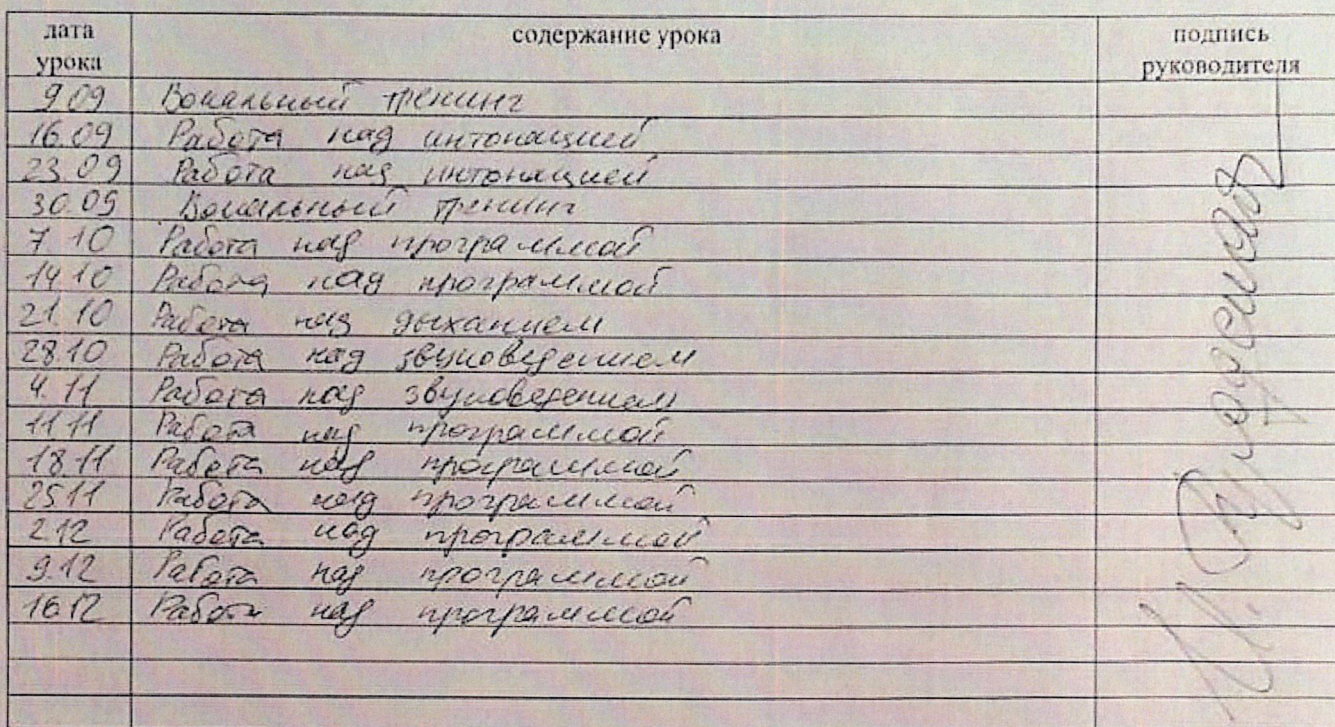 дата урока содержание урока подпись руководителя
9.09 Вокальный тренинг
16.09 Работа над интонацией
23.09 Работа над интонацией
30.09 Вокальный тренинг
7.10 Работа над программой
14.10 Работа над программой
21.10 Работа над дыханием
28.10 Работа над звуковедением
4.11 Работа над звуковедением
11.11 Работа над программой
18.11 Работа над программой
25.11 Работа над программой
2.12 Работа над программой
9.12 Работа над программой
16.12 Работа над программой